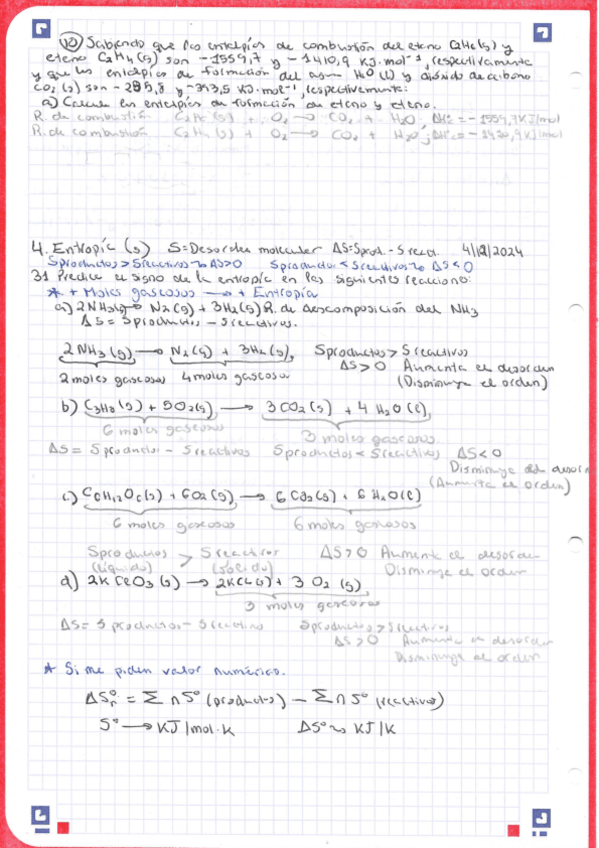 10) Sabiendo que las entalpías de combustión del etano C2H6(g) y
eteno C2H4(g) son -1559,7 y -1410,9 KJ·mol-1, respectivamente
y que las entalpías de formación del agua H2O (l) y dióxido de carbono
CO2(g) son -285,8 y -393,5 KJ·mol-1, respectivamente:
a) Calcula las entalpías de formación de etano y eteno.
R. de combustión C2H6(g) + O2 → CO2 + H2O; ΔHºc = -1559,7KJ/mol
R. de combustión C2H4(g) + O2 → CO2 + H2O; ΔHºc = -1410,9KJ/mol
4. Entropía (s) S=Desorden molecular ΔS=Sprod.-S react. 4/12/2024
Sproductos > Sreactivos → ΔS>0 Sproductos < Sreactivos → ΔS<0
31 Predice el signo de la entropía en las siguientes reacciones:
* + Moles gaseosos → + Entropía
a) 2NH3(g) → N2(g) + 3H2(g) R. de descomposición del NH3
ΔS = Sproductos - Sreactivos.
2NH3(g) → N2(g) + 3H2(g), Sproductos > Sreactivos
2 moles gaseosos 4 moles gaseosos ΔS>0 Aumenta el desorden
(Disminuye el orden)
b) C3H8(g) + 5O2(g) → 3CO2(g) + 4H2O(l),
6 moles gaseosos 3 moles gaseosos
ΔS = Sproductos - Sreactivos Sproductos < Sreactivos ΔS<0
Disminuye el desorden
(Aumenta el orden)
c) C6H12O6(s) + 6O2(g) → 6CO2(g) + 6H2O(l)
6 moles gaseosos 6 moles gaseosos
Sproductos > Sreactivos ΔS>0 Aumenta el desorden
(líquido) (sólido) Disminuye el orden
d) 2KClO3(s) → 2KCl(s) + 3O2(g)
3 moles gaseosos
ΔS = Sproductos - Sreactivos Sproductos > Sreactivos
ΔS>0 Aumenta el desorden
Disminuye el orden
* Si me piden valor numérico.
ΔSºr = Σ n Sº (productos) - Σ n Sº (reactivos)
Sº → KJ/mol·K ΔSº → KJ/K